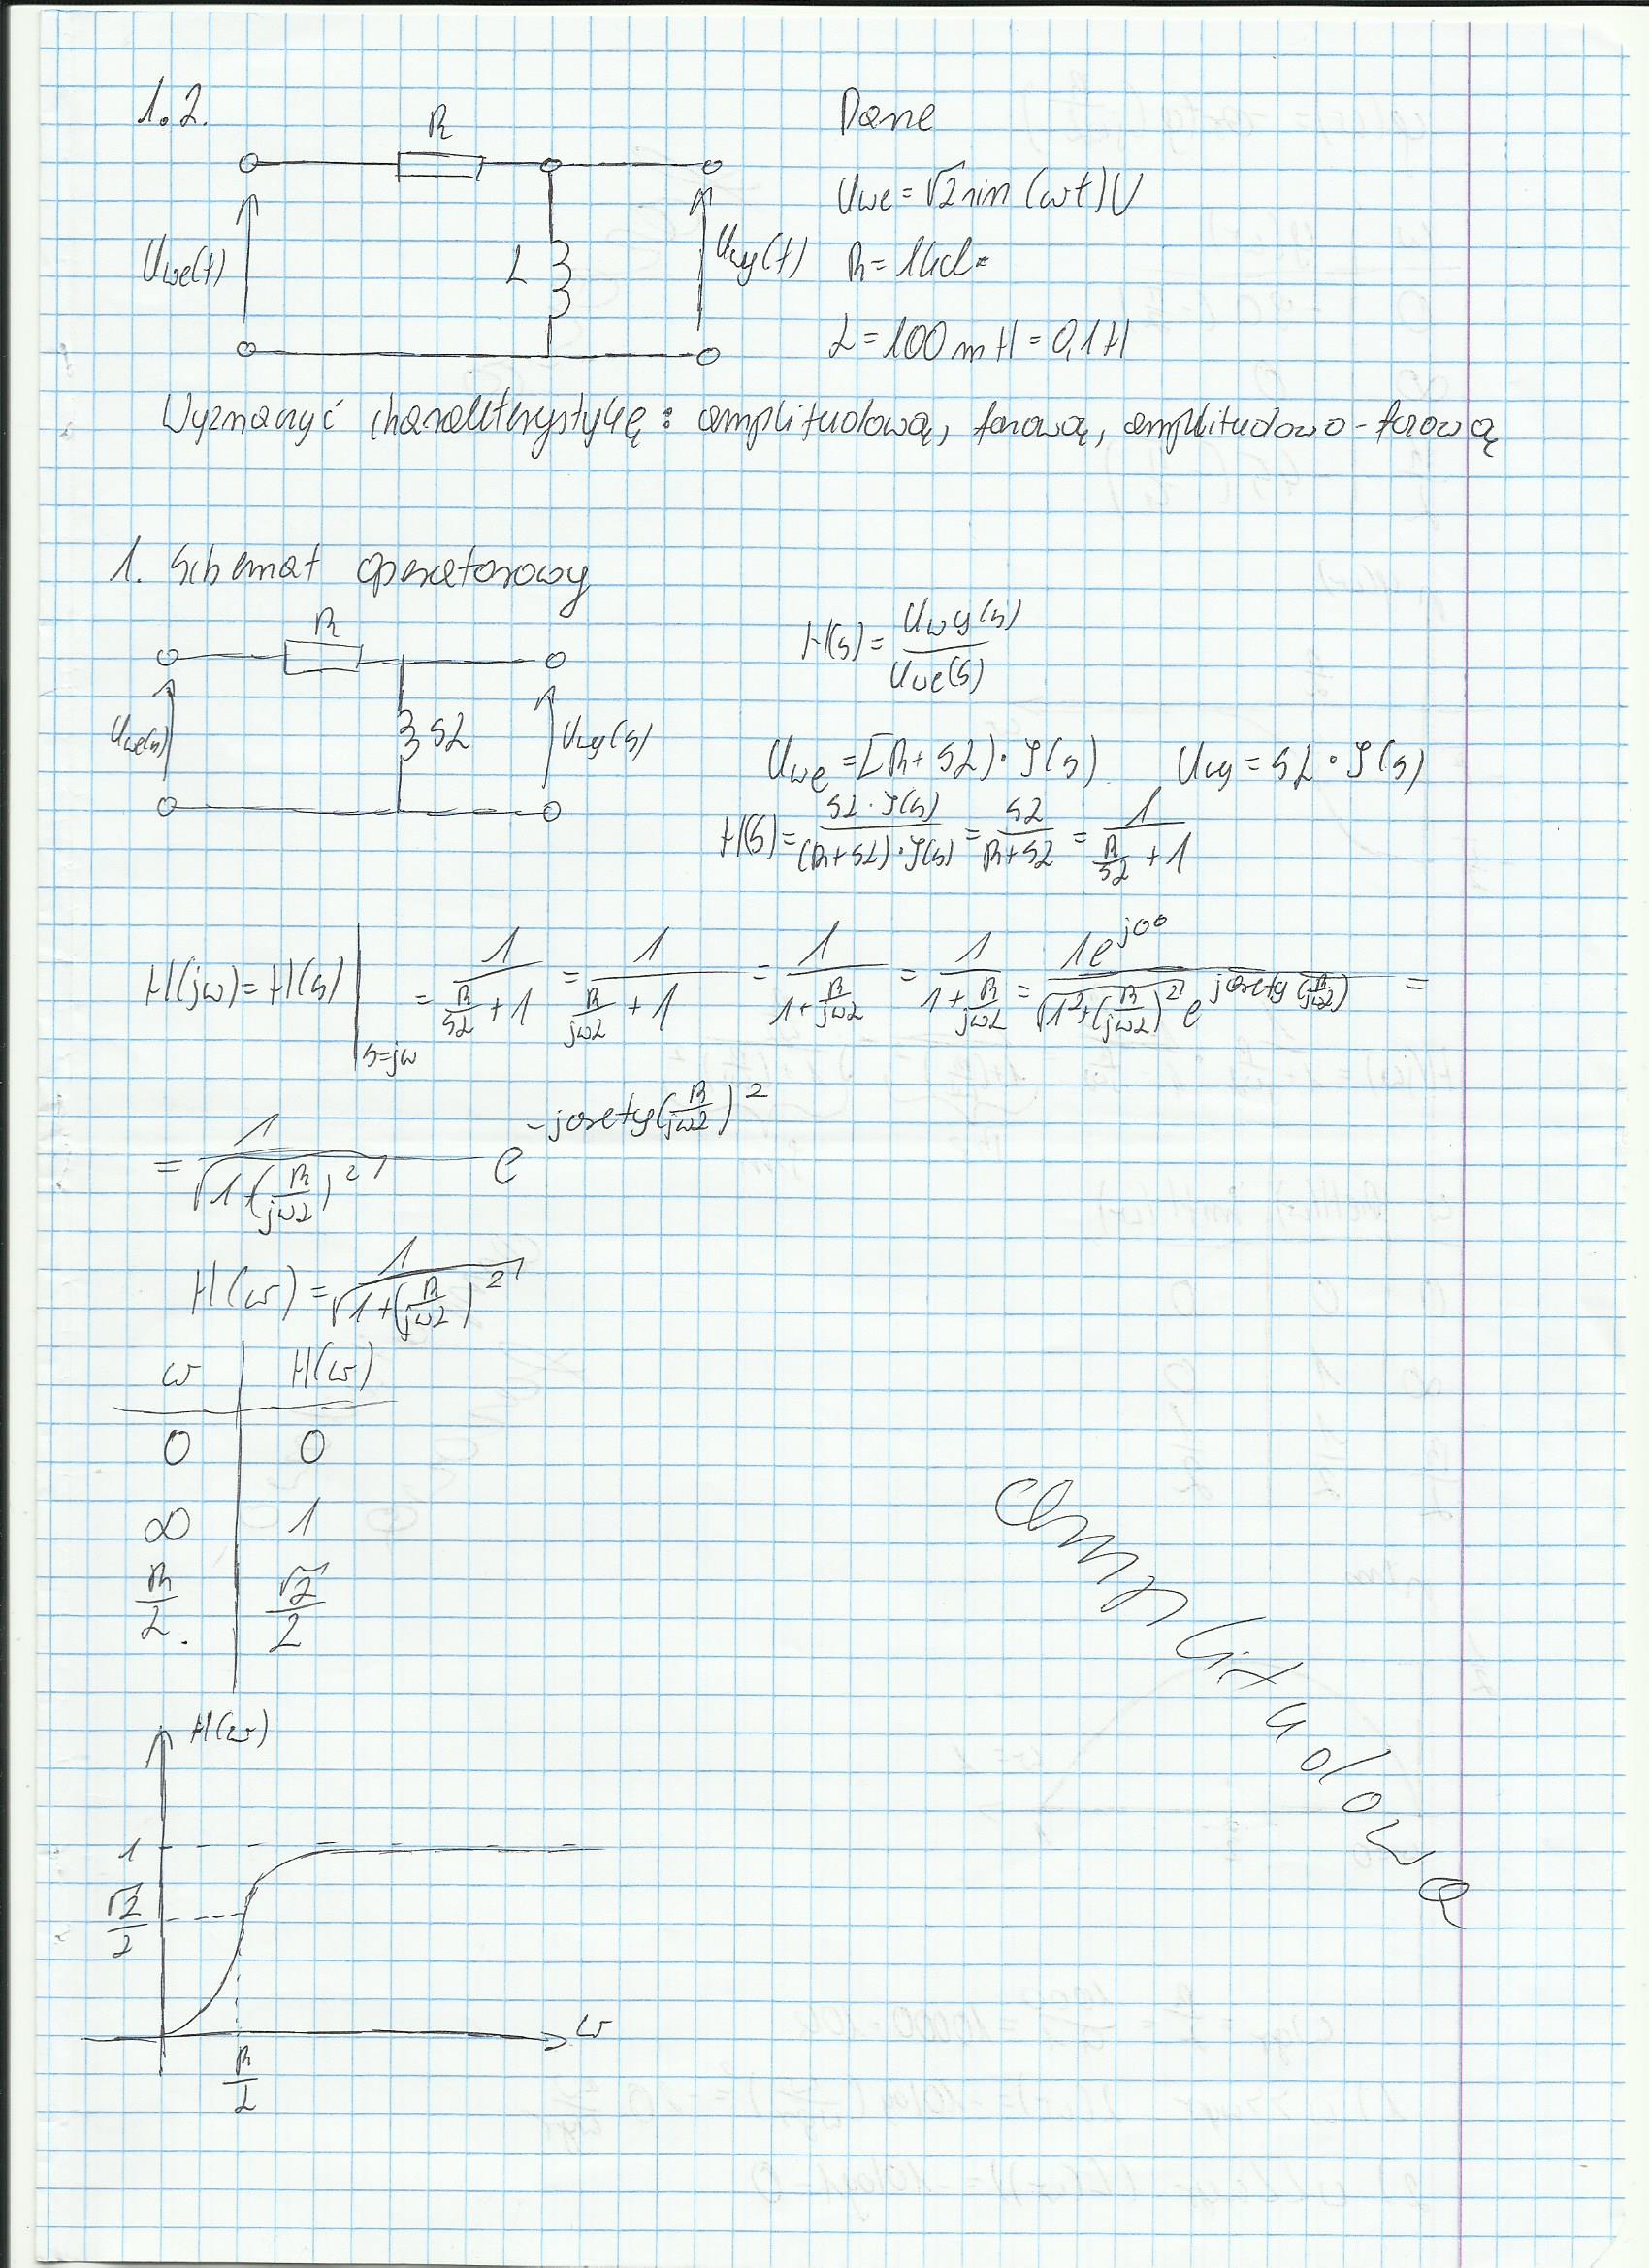 1.2.
R
Dane
Uwe = √2 sin (ωt) V
Uwe(t)
L
Uwy(t)
R = 1kΩ
L = 100 mH = 0,1 H
Wyznaczyć charakterystykę: amplitudową, fazową, amplitudowo-fazową
1. Schemat operatorowy
R
H(s) = Uwy(s) / Uwe(s)
Uwe(s)
sL
Uwy(s)
Uwe = [R + sL) · I(s) Uwy = sL · I(s)
H(s) = sL · I(s) / (R + sL) · I(s) = sL / R + sL = 1 / R/sL + 1
H(jω) = H(s) | s=jω = 1 / R/sL + 1 = 1 / R/jωL + 1 = 1 / 1 + R/jωL = 1 / 1 + R/jωL = 1e^j0° / √1² + (R/jωL)² e^jarctg(R/jωL) =
= 1 / √1 + (R/jωL)² e^-jarctg(R/jωL)²
H(ω) = 1 / √1 + (R/jωL)²
ω H(ω)
0 0
∞ 1
R/L. √2/2
H(ω)
1
√2/2
ω
R/L
amplitudowa